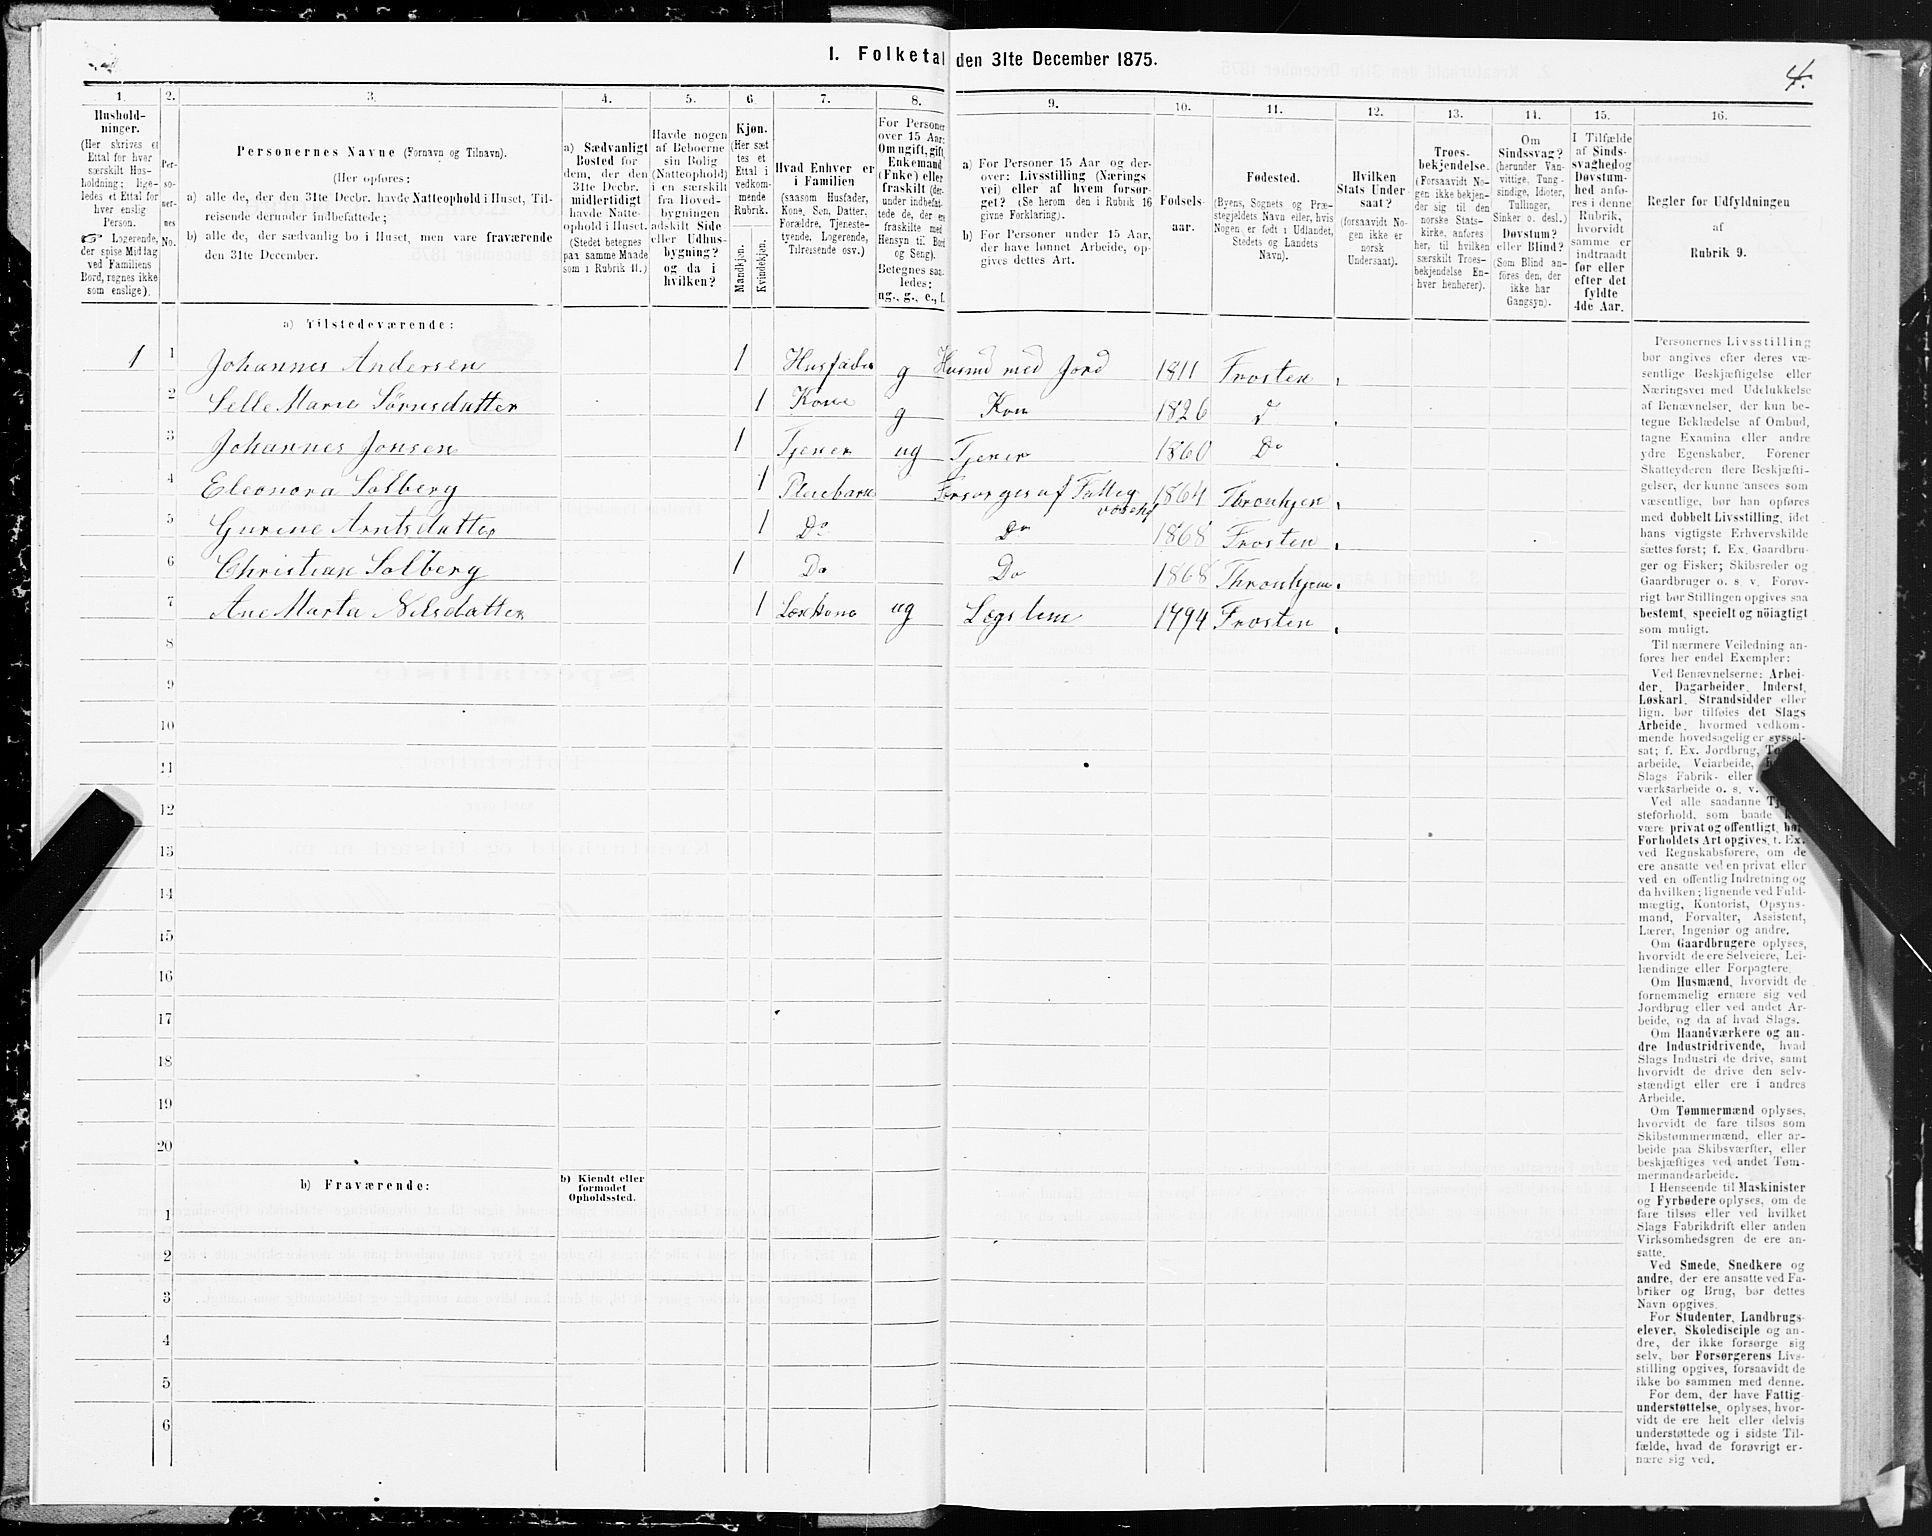 1. Folketal den 31te December 1875.
4.
1. 2. 3. 4. 5. 6. 7. 8. 9. 10. 11. 12. 13. 14. 15. 16.
Hushold-
ninger.
(Her skrives et
Ettal for hver
særskilt Hus-
holdning; lige-
ledes et Ettal for
hver enslig
Person.
☞ Logerende,
der spise Middag
ved Familiens
Bord, regnes ikke
som enslige).
Per-
so-
ner-
nes
No.
Personernes Navne (Fornavn og Tilnavn).
(Her opføres:
a) alle de, der den 31te Decbr. havde Natteophold i Huset, Til-
reisende derunder indbefattede;
b) alle de, der sædvanlig bo i Huset, men vare fraværende
den 31te December.
a) Sædvanligt
Bosted for
dem, der den
31te Decbr.
midlertidigt
havde Natte-
ophold i Huset.
(Stedet betegnes
paa samme Maade
som i Rubrik 11.)
Havde nogen
af Beboerne
sin Bolig
(Natteophold)
i en særskilt
fra Hoved-
bygningen
adskilt Side
eller Udhus-
bygning?
og da i
hvilken?
Kjøn.
(Her sæt
tes et
Ettal i
vedkom-
mende
Rubrik.
Mandkjøn.
Kvindekjøn.
Hvad Enhver er
i Familien
(saasom Husfader,
Kone, Søn, Datter,
Forældre, Tjeneste-
tyende, Logerende,
Tilreisende osv.)
For Personer
over 15 Aar:
Om ugift, gift,
Enkemand
(Enke) eller
fraskilt (der-
under indbefat-
tede de, der ere
fraskilte med
Hensyn til Bord
og Seng).
Betegnes saa-
ledes:
ug., g., e., f.
a) For Personer 15 Aar og der-
over: Livsstilling (Nærings
vei) eller af hvem forsør-
get? (Se herom den i Rubrik 16
givne Forklaring).
b) For Personer under 15 Aar,
der have lønnet Arbeide, op-
gives dettes Art.
Fødsels-
aar.
Fødested.
(Byens, Sognets og Præ-
stegjeldets Navn eller, hvis
Nogen er født i Udlandet,
Stedets og Landets
Navn).
Hvilken
Stats Under-
saat?
(forsaavidt No-
gen ikke er
norsk
Undersaat).
Troes-
bekjendelse.
(Forsaavidt No-
gen ikke bekjen-
der sig til den
norske Stats-
kirke, anføres
her, til hvilken
særskilt Troes-
bekjendelse En-
hver henhører).
Om
Sindssvag?
(herunder Van-
vittige, Tung-
sindige, Idioter,
Tullinger,
Sinker o. desl.)
Døvstum?
eller Blind?
(Som Blind an-
føres den, der
ikke har
Gangsyn).
I Tilfælde
af Sinds-
svaghed og
Døvstum-
hed anfø-
res i denne
Rubrik,
hvorvidt
samme er
indtraadt
før eller
efter det
fyldte
4de Aar.
Regler for Udfyldningen
af
Rubrik 9.
a) Tilstedeværende:
1 1 Johannes Andersen 1 Husfader g Husmd med Jord 1811 Frosten
2 Selle Marie Sørnsdatter 1 Kone g Kone 1826 D
3 Johannes Jonsen 1 Tjener ug Tjener 1860 Do
4 Eleonora Solberg 1 Pleiebarn Forsørges af Fattig 1864 Thronhjem
væsenet
5 Gurine Arntsdatter 1 Do Do 1868 Frosten
6 Christian Solberg 1 Do Do 1868 Thronhjem
7 Ane Marta Nilsdatter 1 ug Lægslem 1794 Frosten
8
9
10
11
12
13
14
15
16
17
18
19
20
b) Fraværende:
b) Kjendt eller
formodet
Opholdssted.
1
2
3
4
5
6
Personernes Livsstilling
bør angives efter deres væ-
sentlige Beskjæftigelse eller
Næringsvei med Udelukkelse
af Benævnelser, der kun be-
tegne Beklædelse af Ombud,
tagne Examina eller andre
ydre Egenskaber. Forener
Skatteyderen flere Beskjæfti-
gelser, der kunne ansees som
væsentlige, bør han opføres
med dobbelt Livsstilling, idet
hans vigtigste Erhvervskilde
sættes først; f. Ex. Gaardbru-
ger og Fisker; Skibsreder og
Gaardbruger o. s. v. Forøv-
rigt bør Stillingen opgives saa
bestemt, specielt og nöiagtigt
som muligt.
Til nærmere Veiledning an-
føres her endel Exempler:
Ved Benævnelserne: Arbei-
der, Dagarbeider, Inderst,
Løskarl, Strandsidder eller
lign. bør tilføies det Slags
Arbeide, hvormed vedkom-
mende hovedsagelig er syssel-
sat; f. Ex. Jordbrug,
arbeide, Veiarbeide,
Slags Fabrik- eller
værksarbeide o. s. v.
Ved alle saadanne
steforhold, som baade
være privat og offentligt, bør
Forholdets Art opgives, f. Ex.
ved Regnskabsførere, om de
ere ansatte ved en privat eller
ved en offentlig Indretning og
da hvilken; lignende ved Fuld-
mægtig, Kontorist, Opsyns-
mand, Forvalter, Assistent,
Lærer, Ingeniør og andre.
Om Gaardbrugere oplyses,
hvorvidt de ere Selveiere, Lei-
lændinge eller Forpagtere.
Om Husmænd, hvorvidt de
fornemmelig ernære sig ved
Jordbrug eller ved andet Ar-
beide, og da af hvad Slags.
Om Haandværkere og an-
dre Industridrivende, hvad
Slags Industri de drive, samt
hvorvidt de drive den selv-
stændigt eller ere i andres
Arbeide.
Om Tømmermænd oplyses,
hvorvidt de fare tilsøs som
Skibstømmermænd, eller ar-
beide paa Skibsværfter, eller
beskjæftiges ved andet Tøm-
mermandsarbeide.
I Henseende til Maskinister
og Fyrbødere oplyses, om de
fare tilsøs eller ved hvilket
Slags Fabrikdrift eller anden
Virksomhedsgren de ere an-
satte.
Ved Smede, Snedkere og
andre, der ere ansatte ved Fa-
briker og Brug, bør dettes
Navn opgives.
For Studenter, Landbrugs-
elever, Skoledisciple og an-
dre, der ikke forsørge sig
selv, bør Forsørgerens Livs-
stilling opgives, forsaavidt de
ikke bo sammen med denne.
For dem, der have Fattig-
understøttelse, oplyses, hvor-
vidt de ere helt eller delvis
understøttede og i sidste Til-
fælde, hvad de forøvrigt er-
nære sig ved.